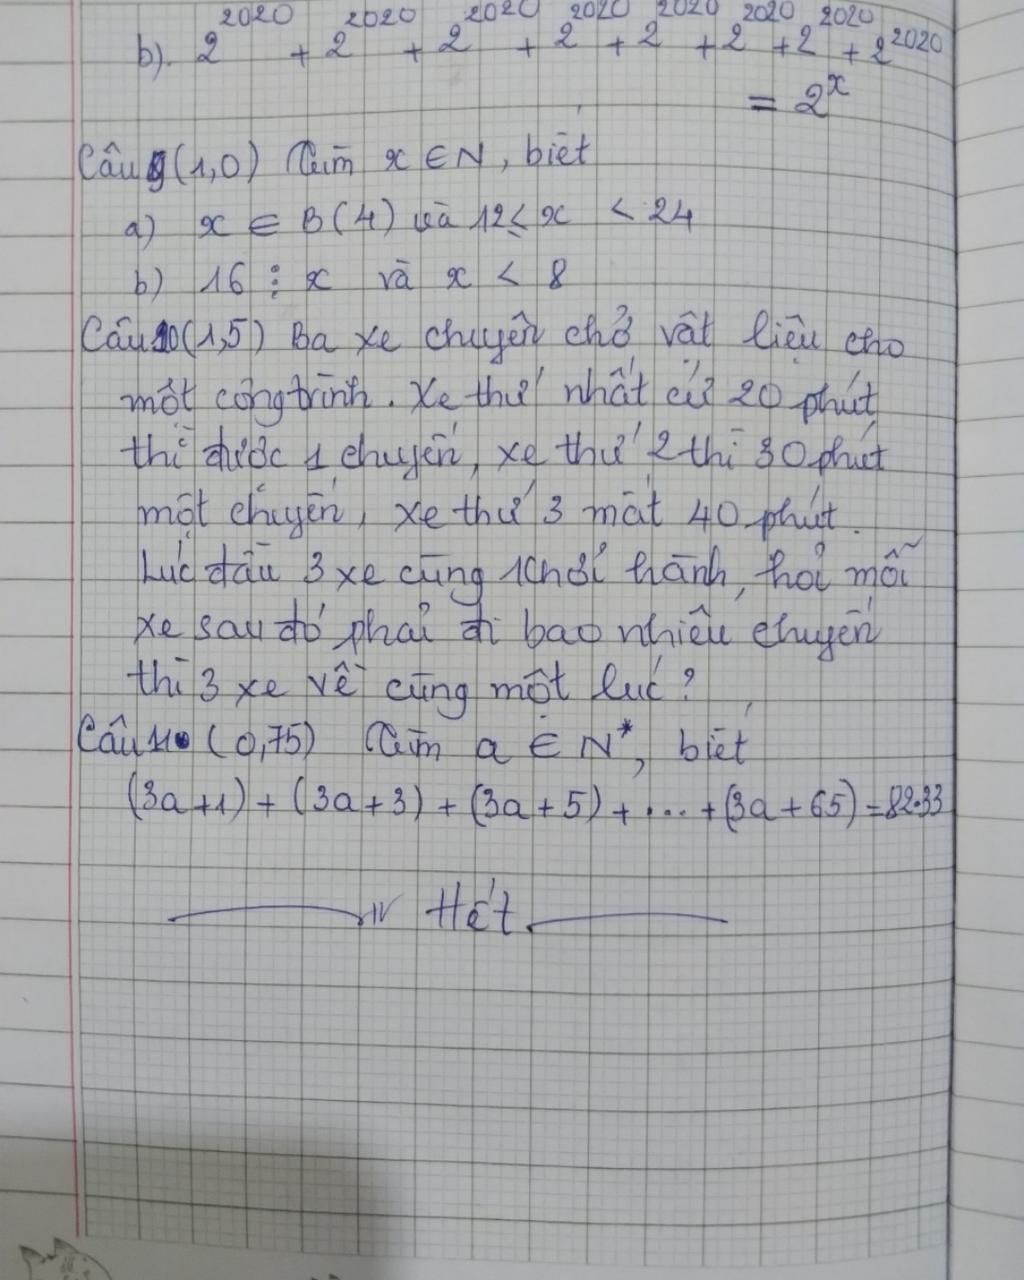 b). 2^2020 + 2^2020 + 2^2020 + 2^2020 + 2^2020 + 2^2020 + 2^2020 + 2^2020
= 2^x
Câu 9 (1,0) Tìm x ∈ N, biết
a) x ∈ B(4) và 12 ≤ x < 24
b) 16 ⋮ x và x < 8
Câu 10 (1,5) Ba xe chuyên chở vật liệu cho
một công trình. Xe thứ nhất cứ 20 phút
thì được 1 chuyến, xe thứ 2 thì 30 phút
một chuyến, xe thứ 3 mất 40 phút.
Lúc đầu 3 xe cùng khởi hành, hỏi mỗi
xe sau đó phải đi bao nhiêu chuyến
thì 3 xe về cùng một lúc?
Câu 11 (0,75) Tìm a ∈ N*, biết
(3a+1) + (3a+3) + (3a+5) + ... + (3a+65) = 82.33
Hết